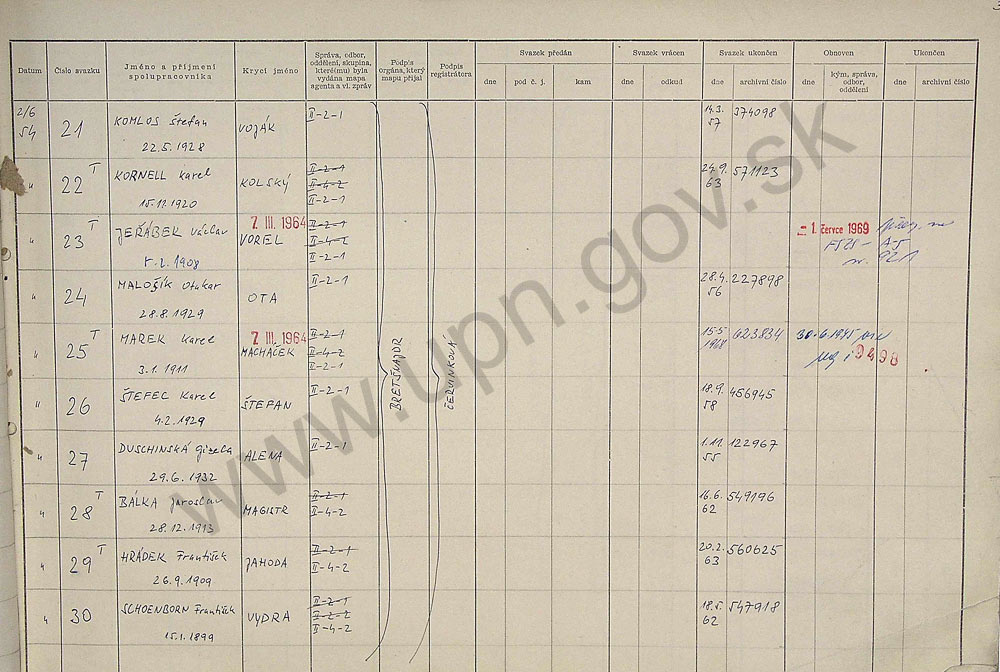 Datum
Číslo svazku
Jméno a příjmení
spolupracovníka
Krycí jméno
Správa, odbor,
oddělení, skupina,
které(mu) byla
vydána mapa
agenta a vl. zpráv
Podpis
orgána, který
mapu přijal
Podpis
registrátora
Svazek předán
dne
pod č. j.
kam
Svazek vrácen
dne
odkud
Svazek ukončen
dne
archivní číslo
Obnoven
dne
kým, správa,
odbor,
oddělení
Ukončen
dne
archivní číslo
2/6
54
21
KOMLOS Štefan
22.5.1928
VOJÁK
II-2-1
14.3.
57
374098
"
22 T
KORNELL Karel
15.11.1920
KOLSKÝ
II-2-1
II-4-2
II-2-1
24.9.
63
571123
"
23 T
JEŘÁBEK Václav
5.2.1908
7. III. 1964
VOREL
II-2-1
II-4-2
II-2-1
- 1. července 1969
"
24
MALOŠÍK Otakar
28.8.1929
OTA
II-2-1
28.4.
56
227898
"
25 T
MAREK Karel
3.1.1911
7. III. 1964
MACHÁČEK
II-2-1
II-4-2
II-2-1
15.5.
1968
623834
9498
"
26
ŠTEFEC Karel
4.2.1929
ŠTEFAN
II-2-1
18.9.
58
456945
"
27
DUSCHINSKÁ Gizela
29.6.1932
ALENA
II-2-1
1.11.
55
122967
"
28 T
BÁLKA Jaroslav
28.12.1913
MAGISTR
II-2-1
II-4-2
16.6.
62
549196
"
29 T
HRÁDEK František
26.9.1909
JAHODA
II-2-1
II-4-2
20.2.
63
560625
"
30
SCHOENBORN František
15.1.1899
VYDRA
II-2-1
II-2-2
II-4-2
18.5.
62
547918
BRETŠNAJDR
ČERVINKOVÁ
www.upn.gov.sk